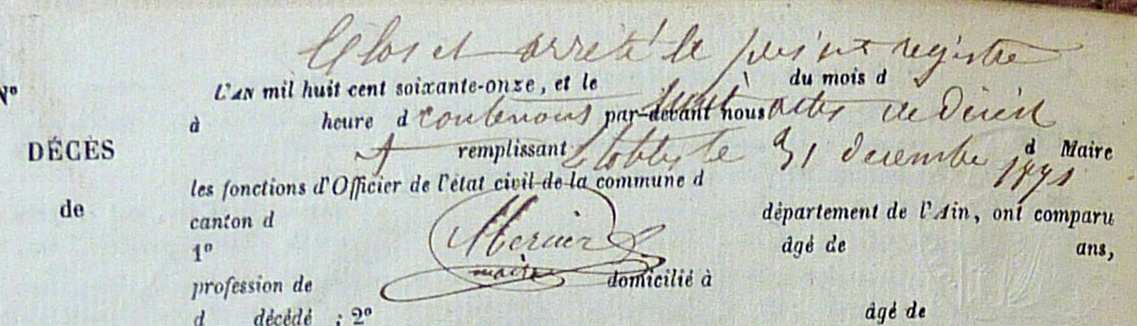 Clos et arrêté le présent registre
N° L'AN mil huit cent soixante-onze, et le du mois d
à heure d contenant par-devant nous actes de Décès
DÉCÈS
remplissant le 31 décembre 1871 d Maire
les fonctions d'Officier de l'état civil de la commune d
de
canton d département de l'Ain, ont comparu
1° Mercier âgé de ans,
profession de maire domicilié à
d décédé ; 2° âgé de